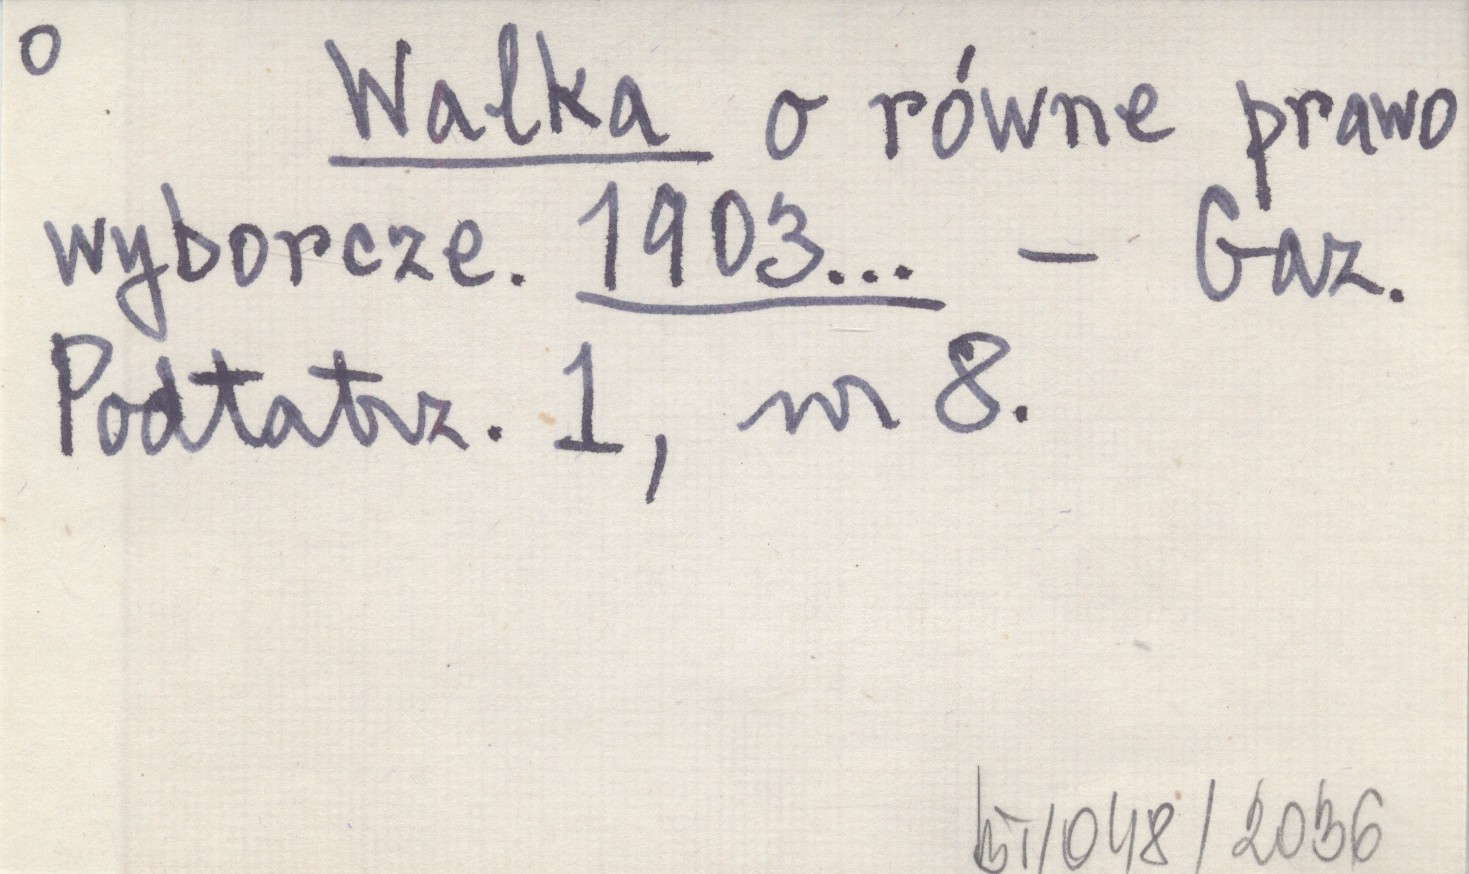 o
Walka o równe prawo
wyborcze. 1903... – Gaz.
Podtatrz. 1, nr 8.
/048/2036